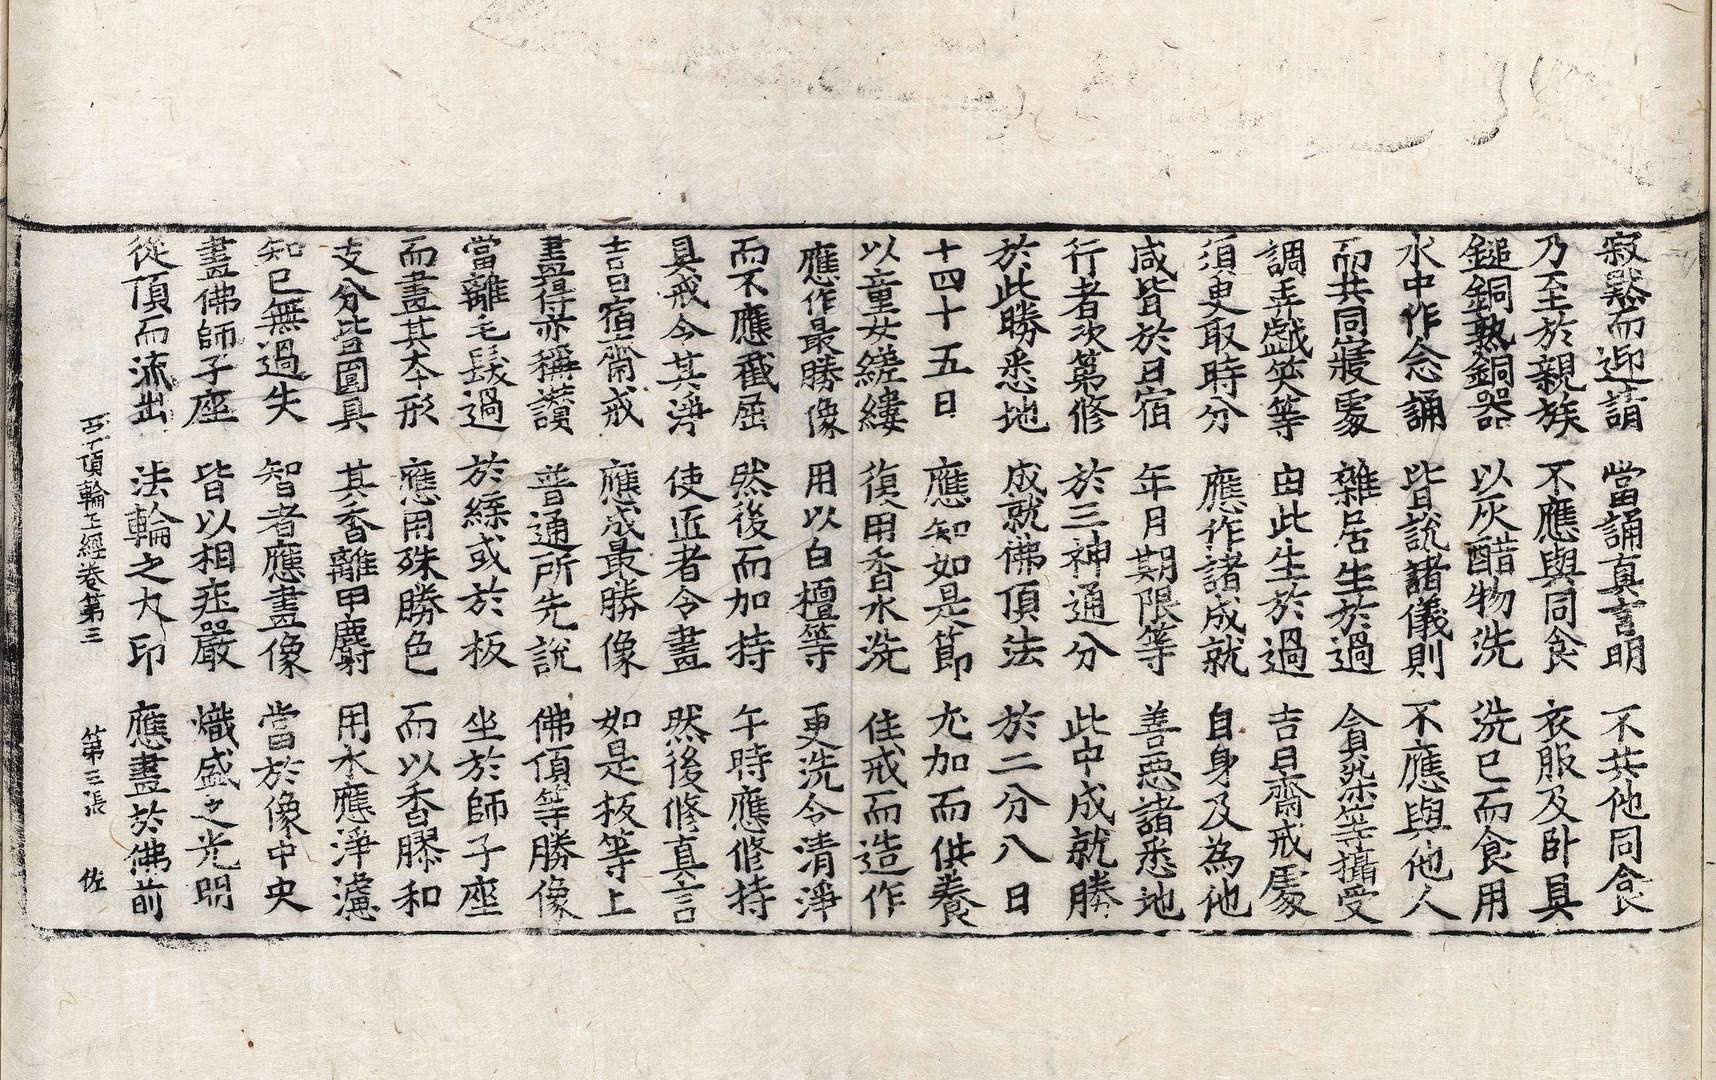 寂默而迎請 當誦真言明 不共他同食
乃至於親族 不應與同食 衣服及卧具
鎚銅熟銅器 以灰醋物洗 洗已而食用
水中作念誦 皆說諸儀則 不應與他人
而共同寢處 雜居生於過 貪染等攝受
調弄戲笑等 由此生於過 吉日齋戒處
須更取時分 應作諸成就 自身及為他
咸皆於日宿 年月期限等 善惡諸悉地
行者次第修 於三神通分 此中成就勝
於此勝悉地 成就佛頂法 於二分八日
十四十五日 應知如是節 尤加而供養
以童女縒縷 復用香水洗 隹戒而造作
應作最勝像 用以白檀等 更洗令清淨
而不應截屈 然後而加持 午時應修持
具戒令其淨 使匠者令畫 然後修真言
吉日宿齋戒 應成最勝像 如是板等上
畫得亦稱讚 普通所先說 佛頂等勝像
當離毛髮過 於絲或於板 坐於師子座
而畫其本形 應用殊勝色 而以香膠和
支分皆圓具 其香離甲麝 用水應淨濾
知已無過失 智者應畫像 當於像中央
畫佛師子座 皆以相莊嚴 熾盛之光明
從頂而流出 法輪之大印 應畫於佛前
頂輪王經卷第三 第三張 佐